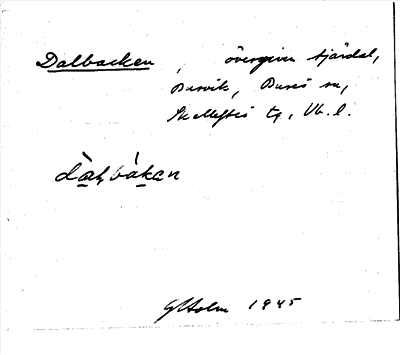 Dalbacken, övergiven tjärdal,
Burvik, Bureå sn,
Skellefteå tg, Vb. l.
dàl̥bàkan
G Holm 1945